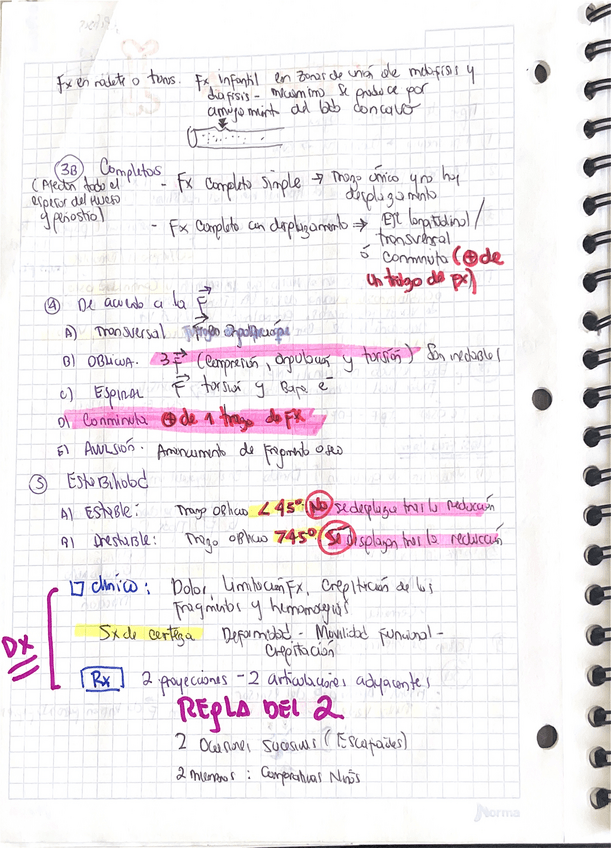 Fx en rodete o torus. Fx infantil en zonas de unión de metafisis y
diafisis - mecanismo se produce por
del lado concavo
3B Completas
(Afectan todo el
espesor del hueso
y periostio)
- Fx completa simple → Trazo único y no hay
desplazamiento
- Fx completa con desplazamiento → Eje longitudinal /
transversal
ó conminuta (⊕ de
un trazo de Fx)
④ De acuerdo a la F
A) Transversal
B) Oblicua. 3F (compresión, angulación y torsión) Son inestables
C) Espiral F torsión y Baja e-
D) Conminuta ⊕ de 1 trazo de Fx
E) Avulsión. Arrancamiento de fragmento oseo
⑤ Estabilidad
A) Estable: Trazo oblicuo < 45° No se desplaza tras la reducción
B) Inestable: Trazo oblicuo >45° Sí desplazan tras la reducción
DX
Clínico: Dolor, Limitación Fx, Crepitación de los
fragmentos y hemorragias
Sx de certeza Deformidad - Movilidad Funcional -
Crepitación
Rx 2 proyecciones - 2 articulaciones adyacentes
REGLA DEL 2
2 Ocasiones sucesivas (Escafoides)
2 miembros: Comparativas Niños
Norma